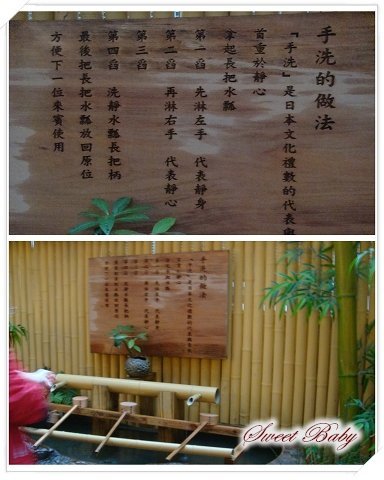 手洗的做法
「手洗」是日本文化禮數的代表與
首重於靜心
拿起長把水瓢
第一舀 先淋左手 代表靜身
第二舀 再淋右手 代表靜心
第三舀
第四舀 洗靜水瓢長把柄
最後把長把水瓢放回原位
方便下一位來賓使用
手洗的做法
Sweet Baby